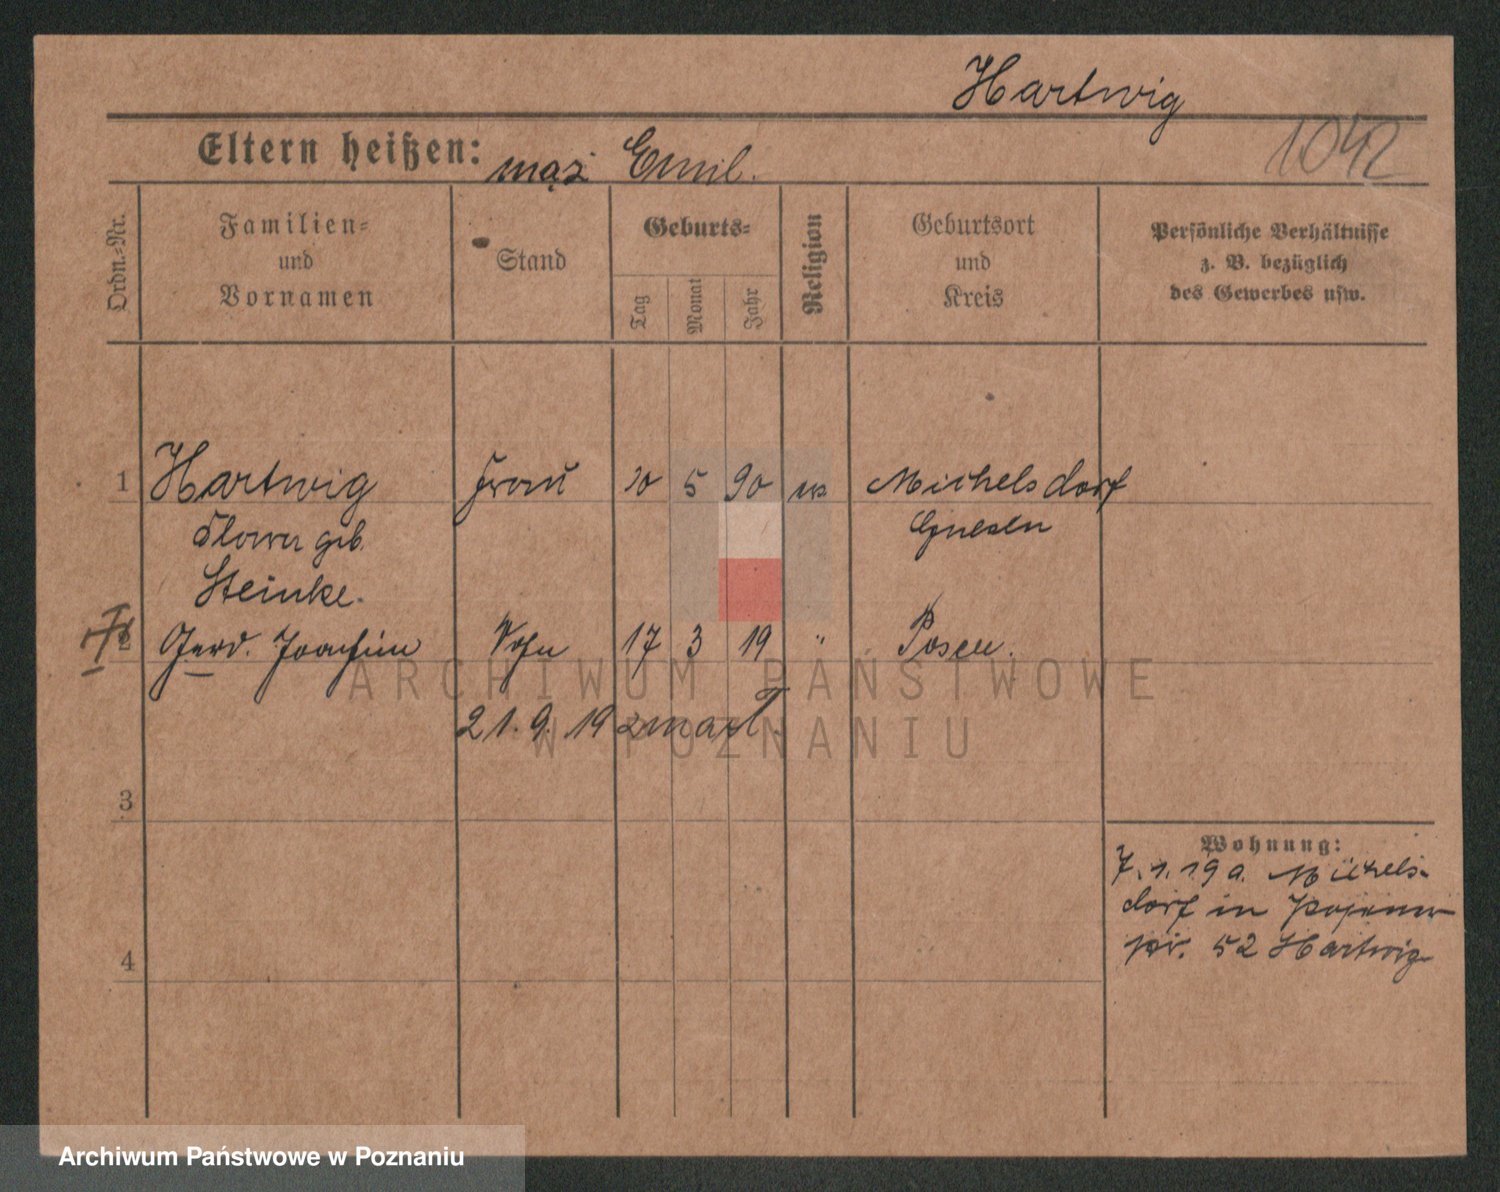 Hartwig
1042
Eltern heißen: mąż Emil.
Ordn.-Nr.
Familien- und Vornamen
Stand
Geburts-
Tag
Monat
Jahr
Religion
Geburtsort und Kreis
Persönliche Verhältnisse
z. B. bezüglich
des Gewerbes usw.
1 Hartwig Frau 20 5 90 Michelsdorf
geb. Gnesen
Steinke.
2 Gerd. Joachim Sohn 17 3 19 " Posen.
21.9.19 zmarł.
ARCHIWUM PAŃSTWOWE
W POZNANIU
3
Wohnung:
7.1.19 a. Michels-
dorf in
52 Hartwig
4
Archiwum Państwowe w Poznaniu